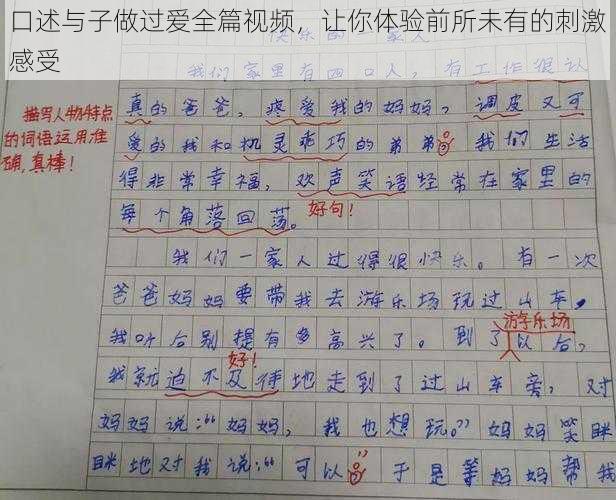 口述与子做过爱全篇视频，让你体验前所未有的刺激
感受
快乐的一家人
我们家里有四口人，有工作很认
真的爸爸，疼爱我的妈妈，调皮又可
爱的我和机灵乖巧的弟弟。我们生活
得非常幸福，欢声笑语经常在家里的
每个角落回荡。
好句！
描写人物特点
的词语运用准
确，真棒！
我们一家人过得很快乐。有一次
爸爸妈妈要带我去游乐场玩过山车，
我听后别提有多高兴了。到了以后，
游乐场
好！
我就迫不及待地走到了过山车旁，对
妈妈说：“妈妈，我也想玩。”妈妈笑眯
眯地对我说：“可以。于是等妈妈帮我